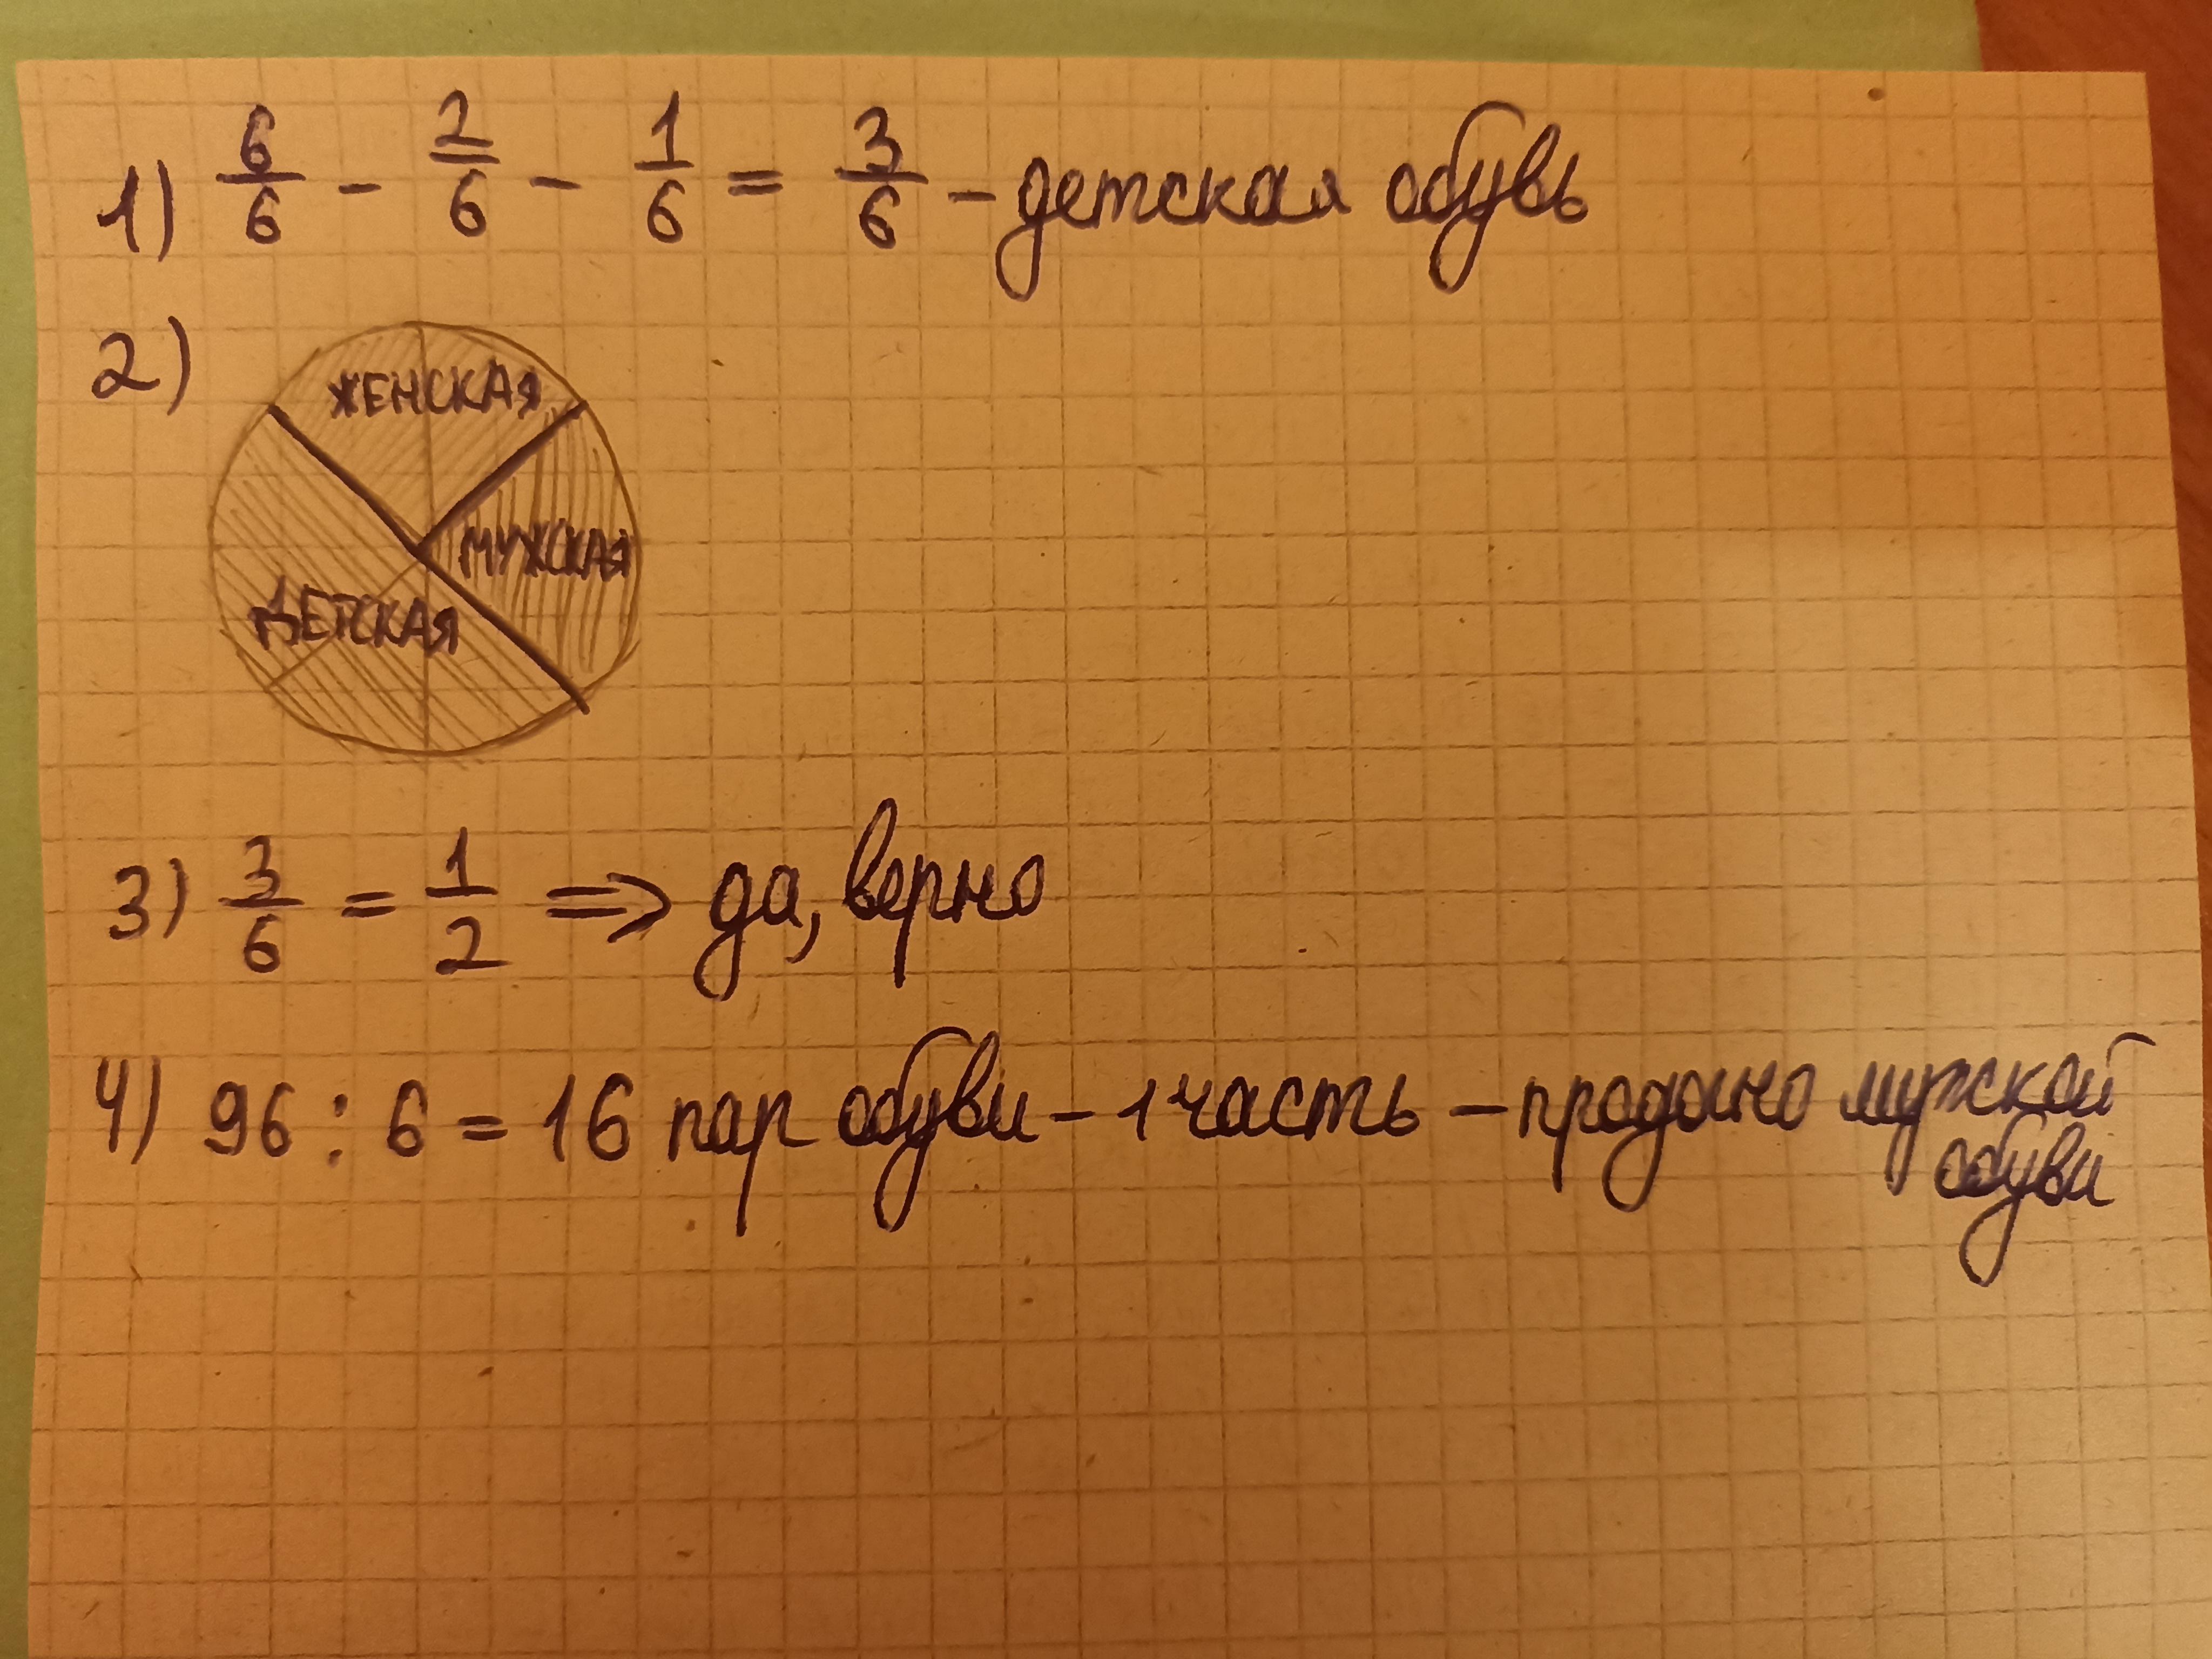 1) 6/6 - 2/6 - 1/6 = 3/6 - детская обувь
2)
ЖЕНСКАЯ
МУЖСКАЯ
ДЕТСКАЯ
3) 3/6 = 1/2 => да, верно
4) 96 : 6 = 16 пар обуви - 1 часть - продано мужской
обуви